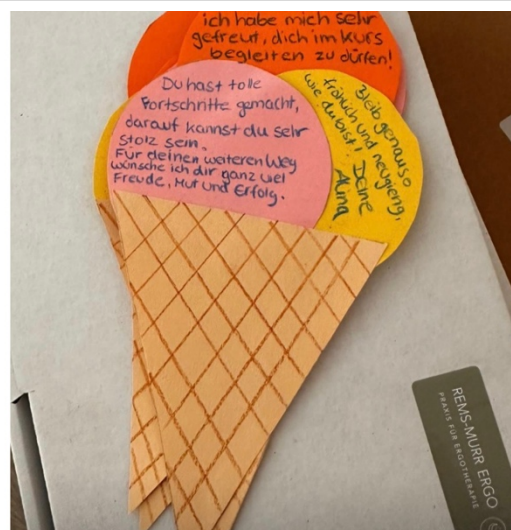 ich habe mich sehr
gefreut, dich im Kurs
begleiten zu dürfen!
Du hast tolle
Fortschritte gemacht,
darauf kannst du sehr
stolz sein.
Für deinen weiteren Weg
wünsche ich dir ganz viel
Freude, Mut und Erfolg.
Bleib genauso
fröhlich und neugierig,
wie du bist!
Deine
Alina
REMS-MURR ERGO
PRAXIS FÜR ERGOTHERAPIE